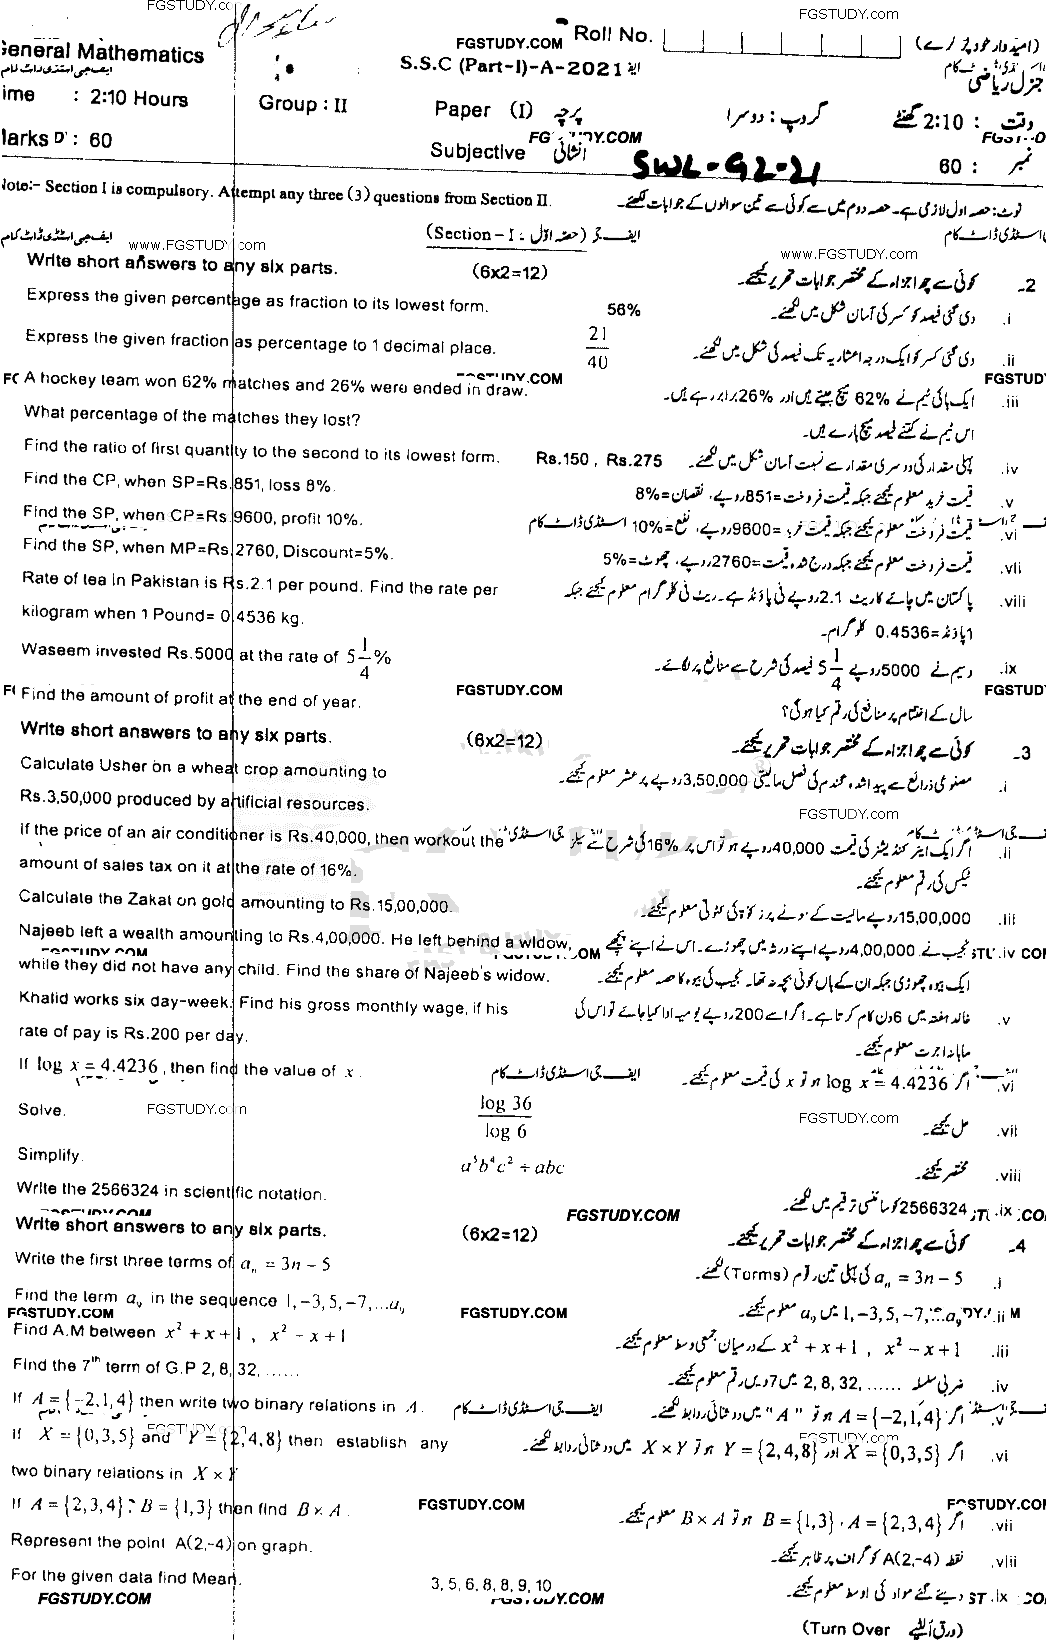 FGSTUDY.CO
FGSTUDY.com
General Mathematics
FGSTUDY.COM
Roll No.
(امیدوار خود پُر کرے)
ایف جی اسٹڈی ڈاٹ کام
S.S.C (Part-I)-A-2021
جنرل ریاضی
ime : 2:10 Hours
Group : II
Paper (I) پرچہ
گروپ : دوسرا
وقت : 2:10 گھنٹے
larks : 60
Subjective انشائی
SWL-G2-21
نمبر : 60
Note:- Section I is compulsory. Attempt any three (3) questions from Section II.
نوٹ: حصہ اول لازمی ہے۔ حصہ دوم میں سے کوئی سے تین سوالوں کے جوابات لکھئے۔
(Section – I : حصہ اوّل)
www.FGSTUDY.com
www.FGSTUDY.com
Write short answers to any six parts. (6x2=12) کوئی سے چھ اجزاء کے مختصر جوابات تحریر کیجئے۔ 2۔
Express the given percentage as fraction to its lowest form. 56% دی گئی فیصد کو کسر کی آسان شکل میں لکھئے۔ i.
Express the given fraction as percentage to 1 decimal place. 21/40 دی گئی کسر کو ایک درجہ اعشاریہ تک فیصد کی شکل میں لکھئے۔ ii.
A hockey team won 62% matches and 26% were ended in draw. ایک ہاکی ٹیم نے 62% میچ جیتے ہیں اور 26% برابر رہے ہیں۔ iii.
What percentage of the matches they lost? اس ٹیم نے کتنے فیصد میچ ہارے ہیں۔
Find the ratio of first quantity to the second to its lowest form. Rs.150 , Rs.275 پہلی مقدار کی دوسری مقدار سے نسبت آسان شکل میں لکھئے۔ iv.
Find the CP, when SP=Rs.851, loss 8%. قیمت خرید معلوم کیجئے جبکہ قیمت فروخت=851روپے، نقصان=8% v.
Find the SP, when CP=Rs.9600, profit 10%. قیمت فروخت معلوم کیجئے جبکہ قیمت خرید=9600روپے، نفع=10% vi.
Find the SP, when MP=Rs.2760, Discount=5%. قیمت فروخت معلوم کیجئے جبکہ درج شدہ قیمت=2760روپے، چھوٹ=5% vii.
Rate of tea in Pakistan is Rs.2.1 per pound. Find the rate per پاکستان میں چائے کا ریٹ 2.1روپے فی پاؤنڈ ہے۔ ریٹ فی کلوگرام معلوم کیجئے جبکہ viii.
kilogram when 1 Pound= 0.4536 kg. 1پاؤنڈ=0.4536 کلوگرام۔
Waseem invested Rs.5000 at the rate of 5 1/4% وسیم نے 5000روپے 5 1/4 فیصد کی شرح سے منافع پر لگائے۔ ix.
Find the amount of profit at the end of year. سال کے اختتام پر منافع کی رقم کیا ہوگی؟
FGSTUDY.COM
Write short answers to any six parts. (6x2=12) کوئی سے چھ اجزاء کے مختصر جوابات تحریر کیجئے۔ 3۔
Calculate Usher on a wheat crop amounting to مصنوعی ذرائع سے پیدا شدہ گندم کی فصل مالیتی 3,50,000روپے پر عشر معلوم کیجئے۔ i.
Rs.3,50,000 produced by artificial resources.
FGSTUDY.com
If the price of an air conditioner is Rs.40,000, then workout the اگر ایک ایئر کنڈیشنر کی قیمت 40,000روپے ہو تو اس پر 16% کی شرح سے سیلز ii.
amount of sales tax on it at the rate of 16%. ٹیکس کی رقم معلوم کیجئے۔
Calculate the Zakat on gold amounting to Rs.15,00,000. 15,00,000روپے مالیت کے سونے پر زکوٰۃ کی کٹوتی معلوم کیجئے۔ iii.
Najeeb left a wealth amounting to Rs.4,00,000. He left behind a widow, نجیب نے 4,00,000روپے اپنے ورثہ میں چھوڑے۔ اس نے اپنے پیچھے iv.
while they did not have any child. Find the share of Najeeb's widow. ایک بیوہ چھوڑی جبکہ ان کے ہاں کوئی بچہ نہ تھا۔ نجیب کی بیوہ کا حصہ معلوم کیجئے۔
Khalid works six day-week. Find his gross monthly wage, if his خالد ہفتہ میں 6دن کام کرتا ہے۔ اگر اسے 200روپے یومیہ ادا کیا جائے تو اس کی v.
rate of pay is Rs.200 per day. ماہانہ اجرت معلوم کیجئے۔
If log x = 4.4236 , then find the value of x . ایف جی اسٹڈی ڈاٹ کام اگر log x = 4.4236 ہو تو x کی قیمت معلوم کیجئے۔ vi.
Solve. FGSTUDY.com log 36 / log 6 FGSTUDY.com حل کیجئے۔ vii.
Simplify. a⁵b⁴c² ÷ abc مختصر کیجئے۔ viii.
Write the 2566324 in scientific notation. 2566324 کو سائنسی ترقیم میں لکھئے۔ ix.
FGSTUDY.COM
Write short answers to any six parts. (6x2=12) کوئی سے چھ اجزاء کے مختصر جوابات تحریر کیجئے۔ 4۔
Write the first three terms of aₙ = 3n − 5 aₙ = 3n − 5 کی پہلی تین رقوم (Terms) لکھئے۔ i.
Find the term a₉ in the sequence 1,−3,5,−7,...a₉ 1,−3,5,−7,...a₉ میں a₉ معلوم کیجئے۔ ii.
FGSTUDY.COM FGSTUDY.COM
Find A.M between x² + x + 1 , x² − x + 1 x² + x + 1 , x² − x + 1 کے درمیان جمعی وسط معلوم کیجئے۔ iii.
Find the 7th term of G.P 2, 8, 32, ...... ضربی سلسلہ 2, 8, 32, ...... میں 7ویں رقم معلوم کیجئے۔ iv.
If A = {−2,1,4} then write two binary relations in A . ایف جی اسٹڈی ڈاٹ کام اگر A = {−2,1,4} ہو تو "A" میں دو ثنائی روابط لکھئے۔ v.
If X = {0,3,5} and Y = {2,4,8} then establish any اگر X = {0,3,5} اور Y = {2,4,8} ہو تو X × Y میں دو ثنائی روابط لکھئے۔ vi.
two binary relations in X × Y
If A = {2,3,4} ; B = {1,3} then find B × A . FGSTUDY.COM اگر A = {2,3,4} ، B = {1,3} ہو تو B × A معلوم کیجئے۔ vii.
Represent the point A(2,-4) on graph. نقطہ A(2,-4) کو گراف پر ظاہر کیجئے۔ viii.
For the given data find Mean. 3, 5, 6, 8, 8, 9, 10 دیئے گئے مواد کی اوسط معلوم کیجئے۔ ix.
FGSTUDY.COM
(Turn Over ورق الٹیے)